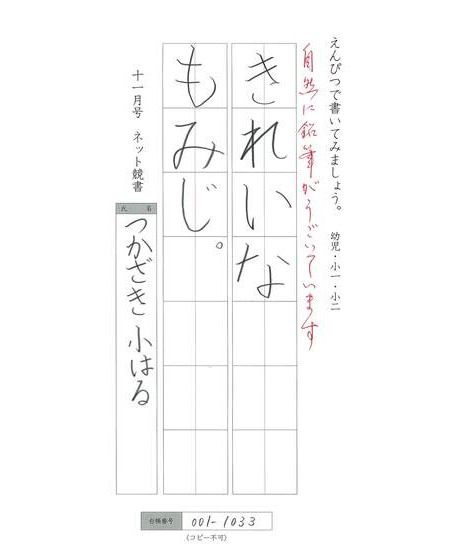 えんぴつで書いてみましょう。　幼児・小一・小二
自然に鉛筆がうごいています
きれいな
もみじ。
十一月号　ネット競書
氏名
つかざき小はる
台帳番号 001-1033
(コピー不可)